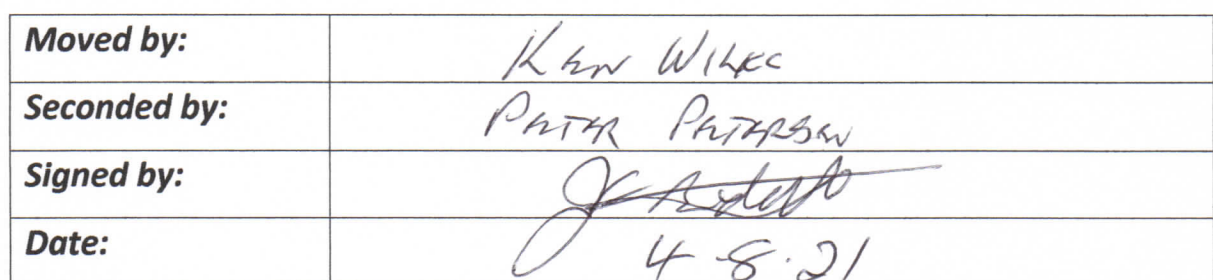 Moved by: KEN WILKS
Seconded by: PETER PETERSEN
Signed by:
Date: 4-8.21